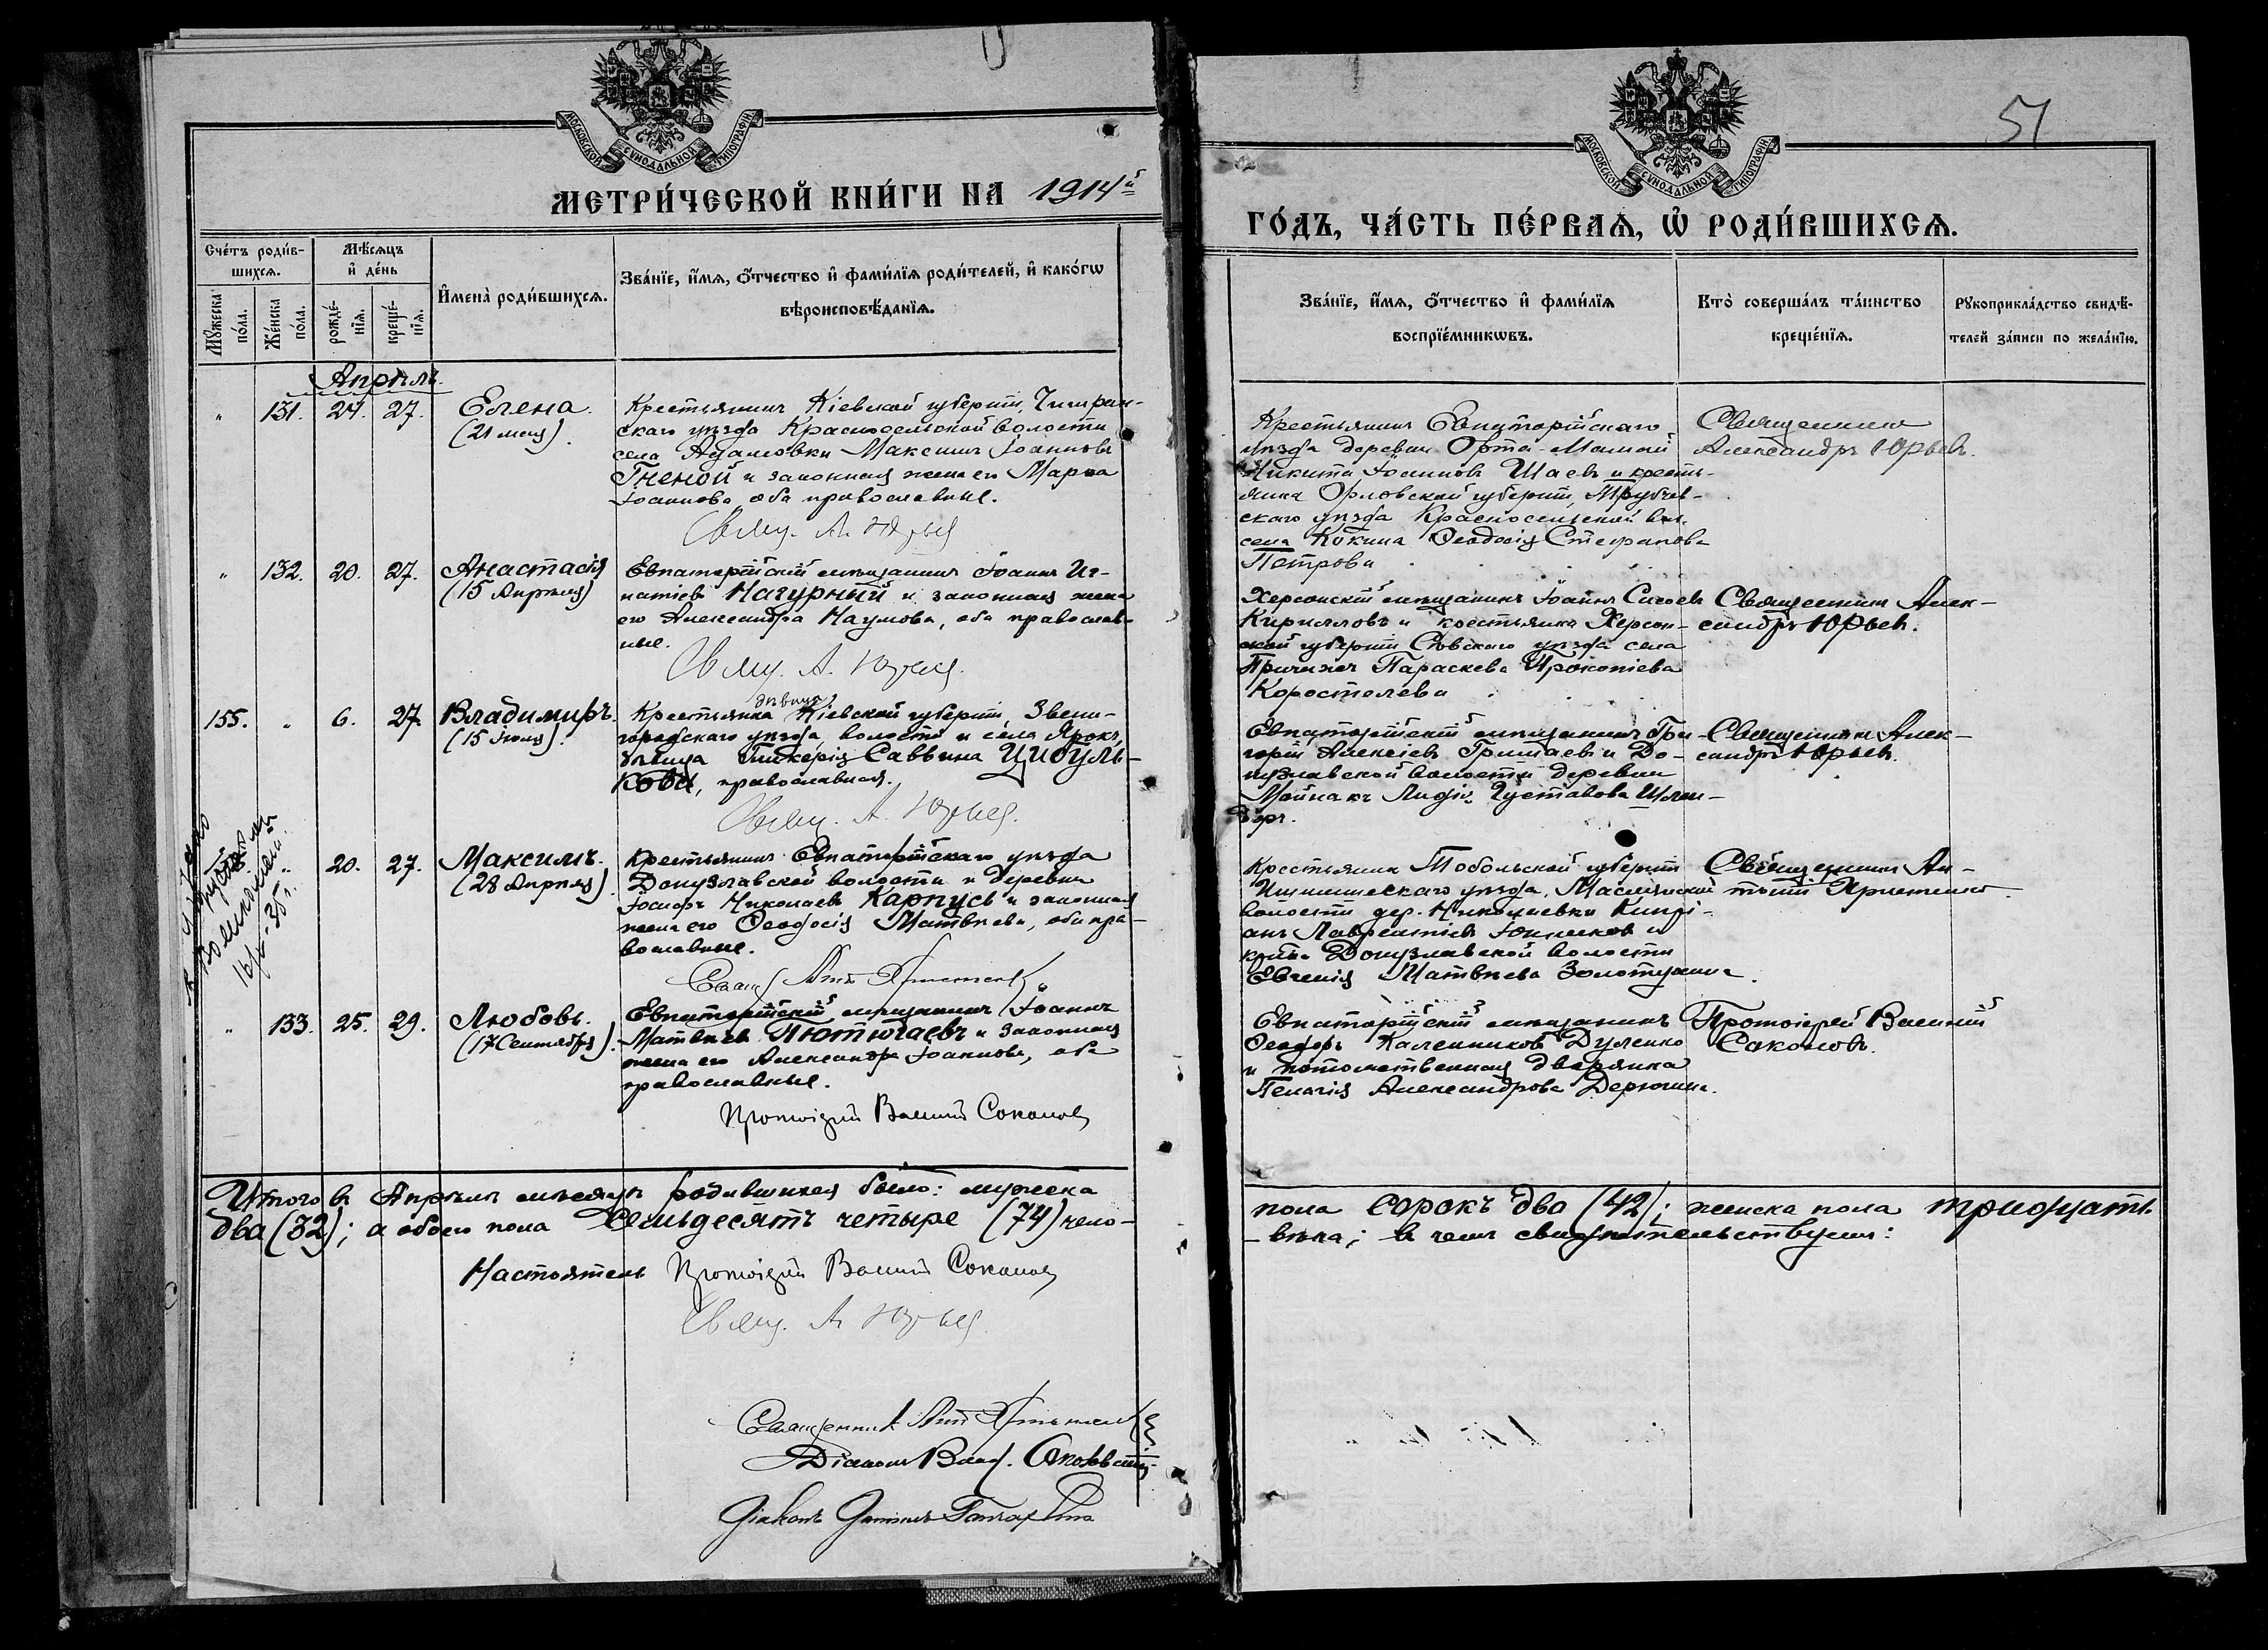 МОСКОВСКОЙ СѴНОДАЛЬНОЙ ТИПОГРАФІИ
МЕТРИ́ЧЕСКОЙ КНИ́ГИ НА 1914й
Сче́тъ роди́в-
шихсѧ.
Мѣ́сѧцъ
и҆ де́нь
Мꙋ́жеска по́ла.
Же́нска по́ла.
рожде́-
нїѧ.
креще́-
нїѧ.
И҆мена̀ роди́вшихсѧ.
Зва́нїе, и҆́мѧ, ѻ҆́тчество и҆ фами́лїѧ роди́телей, и҆ како́гѡ
вѣроисповѣ́данїѧ.
Апрѣль.
" 131. 24. 27. Елена.
(21 мая).
Крестьянинъ Кіевской губерніи, Чигирин-
скаго уѣзда Красносельской волости
села Адамовки Максимъ Іоанновъ
Гненой и законная жена его Марѳа
Іоаннова, оба православные.
Свящ. А. Юрьев
" 132. 20. 27. Анастасія
(15 Апрѣля)
Евпаторійскій мѣщанинъ Іоаннъ Иг-
натіевъ Нагурный и законная жена
его Александра Наумова, оба православ-
ные.
Свящ. А. Юрьев.
155. " 6. 27. Владимиръ.
(15 Іюля).
дѣвица
Крестьянка Кіевской губерніи, Звени-
городскаго уѣзда, волости и села
дѣвица Гликерія Саввина Цибуль-
кова, православная.
Свящ. А. Юрьев.
" 20. 27. Максимъ.
(28 Апрѣля).
Крестьянинъ Евпаторійскаго уѣзда
Донузлавской волости и деревни
Іосифъ Николаевъ Карпусь и законная
жена его Ѳеодосія Матвѣева, оба пра-
вославные.
" 133. 25. 29. Любовь.
(17 Сентября).
Евпаторійскій мѣщанинъ Іоаннъ
Матвѣевъ Лютюгаевъ и законная
жена его Александра Іоаннова, оба
православные.
Протоіерей Василій Соколов
Итого въ Апрѣлѣ мѣсяцѣ родившихся было: мужеска
два (32); а обоего пола семьдесятъ четыре (74) чело-
Настоятель Протоіерей Василій Соколов
Свящ. А. Юрьев
Священник
Діаконъ Влад.
Діаконъ
51
МОСКОВСКОЙ СѴНОДАЛЬНОЙ ТИПОГРАФІИ
ГО́ДЪ, ЧА́СТЬ ПЕ́РВАѦ, Ѡ҆ РОДИ́ВШИХСѦ.
Зва́нїе, и҆́мѧ, ѻ҆́тчество и҆ фами́лїѧ
воспрїе́мникѡвъ.
Кто̀ соверша́лъ та́инство
креще́нїѧ.
Рꙋкоприкла́дство свидѣ́-
телей за́писи по жела́нїю.
Крестьянинъ Евпаторійскаго
уѣзда деревни Орта-Мамай
Никита Іоанновъ Шаевъ и кресть-
янка Орловской губерніи, Трубчев-
скаго уѣзда Красносельской вол.
села Кокина Ѳеодосія Стефанова
Петрова
Священникъ
Александръ Юрьевъ.
Херсонскій мѣщанинъ Іоаннъ Сисоевъ
Кирилловъ и крестьянка Херсон-
ской губерніи уѣзда села
Параскева Прокопіева
Коростелева
Священникъ Алек-
сандръ Юрьевъ.
Евпаторійскій мѣщанинъ Гри-
горій Алексіевъ и До-
нузлавской волости деревни
Майнакъ Лидія Густавова Шлен-
деръ.
Священникъ Алек-
сандръ Юрьевъ.
Крестьянинъ Тобольской губерніи
Ишимскаго уѣзда,
волости дер. Николаевки Кипрі-
анъ Лаврентіевъ и
кр-ка Донузлавской волости
Евгенія Матвѣева
Священникъ Ан-
тоній
Евпаторійскій мѣщанинъ
Ѳеодоръ Каленниковъ Дуленко
и потомственная дворянка
Пелагія Александрова Дерюгина.
Протоіерей Василій
Соколовъ.
пола сорокъ два (42); женска пола тридцать
-вѣка; въ чемъ свидѣтельствуемъ: